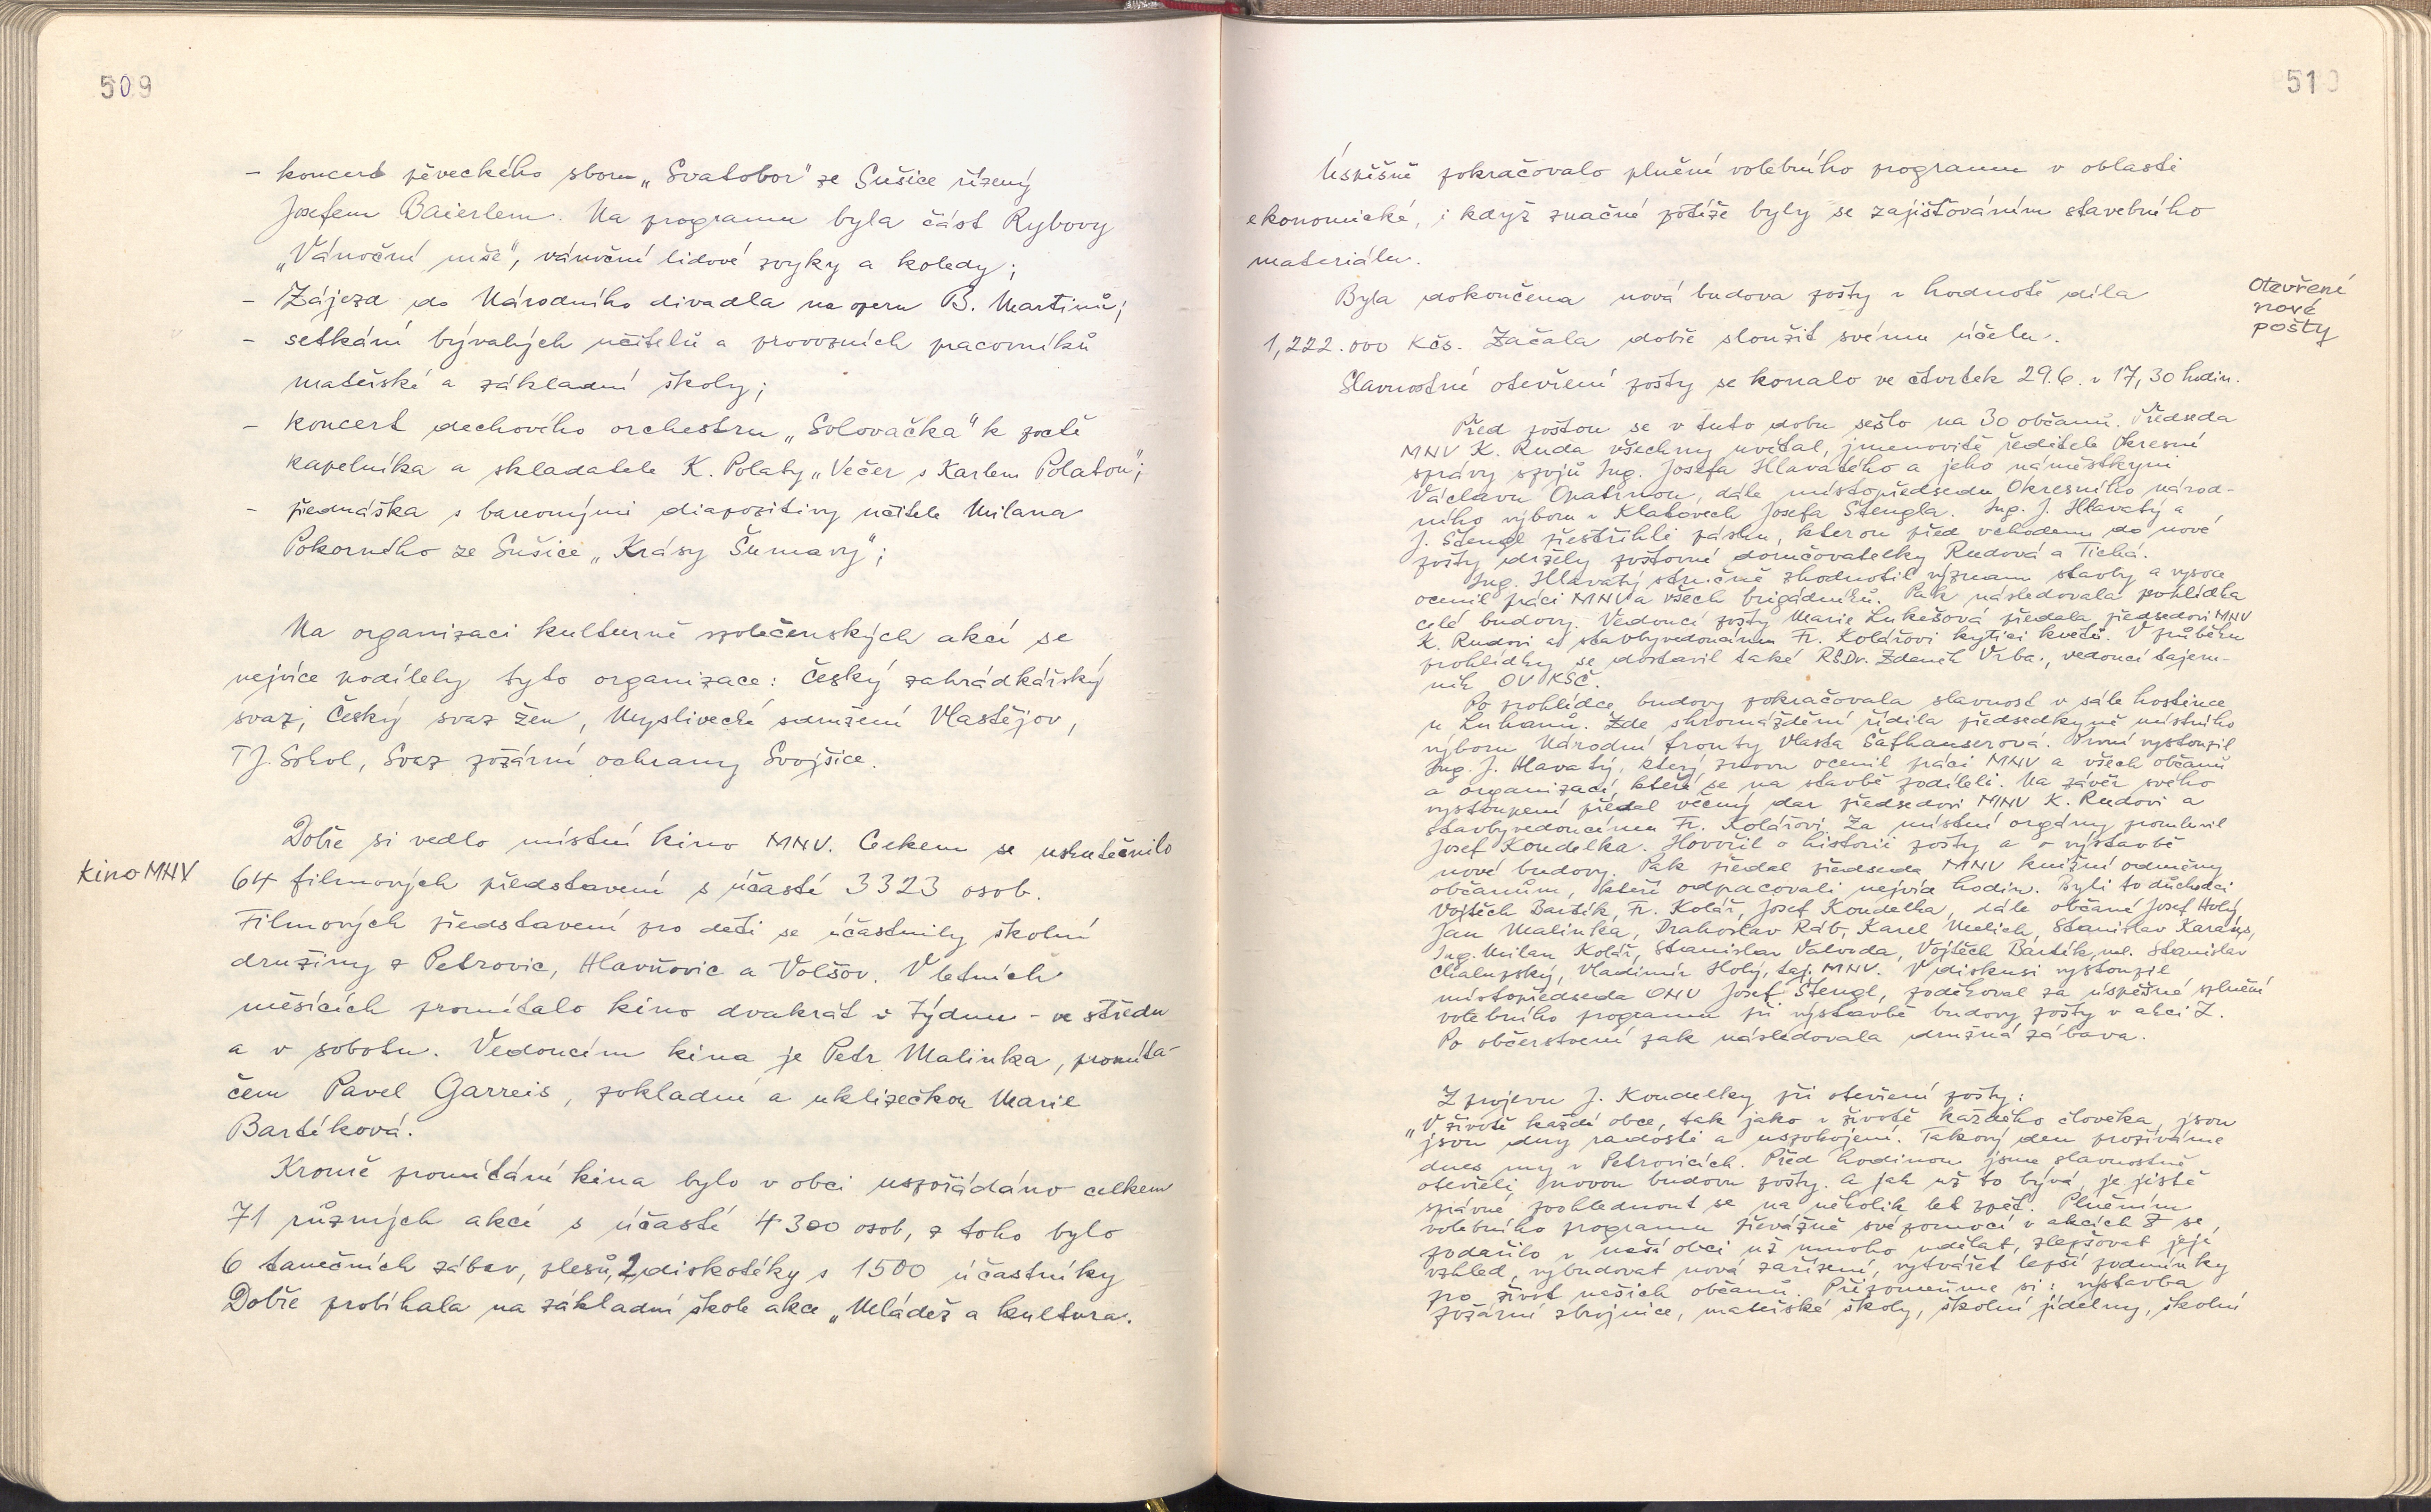 509
- koncert pěveckého sboru „Svatobor" ze Sušice řízený
Josefem Baierlem. Na programu byla část Rybovy
„Vánoční mše", vánoční lidové zvyky a koledy;
- Zájezd do Národního divadla na operu B. Martinů;
- setkání bývalých učitelů a provozních pracovníků
mateřské a základní školy;
- koncert dechového orchestru „Solovačka" k poctě
kapelníka a skladatele K. Polaty „Večer s Karlem Polatou";
- přednáška s barevnými diapozitivy učitele Milana
Pokorného ze Sušice „Krásy Šumavy";
Na organizaci kulturně společenských akcí se
nejvíce podílely tyto organizace: Český zahrádkářský
svaz, Český svaz žen, Myslivecké sdružení Vlastějov,
TJ. Sokol, Svaz požární ochrany Svojšice.
kino MNV
Dobře si vedlo místní kino MNV. Celkem se uskutečnilo
64 filmových představení s účastí 3323 osob.
Filmových představení pro děti se účastnily školní
družiny z Petrovic, Hlavňovic a Volšov. V letních
měsících promítalo kino dvakrát v týdnu - ve středu
a v sobotu. Vedoucím kina je Petr Malinka, promíta-
čem Pavel Garreis, pokladní a uklizečkou Marie
Bartíková.
Kromě promítání kina bylo v obci uspořádáno celkem
71 různých akcí s účastí 4300 osob, z toho bylo
6 tanečních zábav, plesů, 2 diskotéky s 1500 účastníky
Dobře probíhala na základní škole akce „Mládež a kultura.
510
Úspěšně pokračovalo plnění volebního programu v oblasti
ekonomické, i když značné potíže byly se zajišťováním stavebního
materiálu.
Otevření
nové
pošty
Byla dokončena nová budova pošty v hodnotě díla
1,222.000 Kčs. Začala dobře sloužit svému účelu.
Slavnostní otevření pošty se konalo ve čtvrtek 29.6. v 17,30 hodin.
Před poštou se v tuto dobu sešlo na 30 občanů. Předseda
MNV K. Ruda všechny uvítal, jmenovitě ředitele Okresní
správy spojů Ing. Josefa Hlavatého a jeho náměstkyni
Václavu Opatrnou, dále místopředsedu Okresního národ-
ního výboru v Klatovech Josefa Štengla. Ing. J. Hlavatý a
J. Štengl přestřihli pásku, kterou před vchodem do nové
pošty držely poštovní doručovatelky Rudová a Tichá.
Ing. Hlavatý stručně zhodnotil význam stavby a vysoce
ocenil práci MNV a všech brigádníků. Pak následovala prohlídka
celé budovy. Vedoucí pošty Marie Lukešová předala předsedovi MNV
K. Rudovi a stavbyvedoucímu Fr. Kolářovi kytici květů. V průběhu
prohlídky se dostavil také RSDr. Zdeněk Vrba, vedoucí tajem-
ník OV KSČ.
Po prohlídce budovy pokračovala slavnost v sále hostince
u Luhanů. Zde shromáždění řídila předsedkyně místního
výboru Národní fronty Vlasta Šafhauserová. První vystoupil
Ing. J. Hlavatý, který znovu ocenil práci MNV a všech občanů
a organizací, kteří se na stavbě podíleli. Na závěr svého
vystoupení předal věcný dar předsedovi MNV K. Rudovi a
stavbyvedoucímu Fr. Kolářovi. Za místní orgány promluvil
Josef Koudelka. Hovořil o historii pošty a o výstavbě
nové budovy. Pak předal předseda MNV knižní odměny
občanům, kteří odpracovali nejvíc hodin. Byli to důchodci
Vojtěch Bartík, Fr. Kolář, Josef Koudelka, dále občané Josef Holý,
Jan Malinka, Drahoslav Ráb, Karel Melich, Stanislav Karaus,
Ing. Milan Kolář, Stanislav Valvoda, Vojtěch Bartík, ml. Stanislav
Chalupský, Vladimír Holý, taj. MNV. V diskusi vystoupil
místopředseda ONV Josef Štengl, poděkoval za úspěšné splnění
volebního programu při výstavbě budovy pošty v akci Z.
Po občerstvení pak následovala družná zábava.
Z projevu J. Koudelky při otevření pošty:
„V životě každé obce, tak jako v životě každého člověka, jsou
jsou dny radosti a uspokojení. Takový den prožíváme
dnes my v Petrovicích. Před hodinou jsme slavnostně
otevřeli novou budovu pošty. A jak už to bývá, je jistě
správné, poohlednout se na několik let zpět. Plněním
volebního programu převážně svépomocí v akcích Z se
podařilo v naší obci už mnoho udělat, zlepšovat její
vzhled, vybudovat nová zařízení, vytvářet lepší podmínky
pro život našich občanů. Připomeňme si: výstavba
požární zbrojnice, mateřské školy, školní jídelny, školní